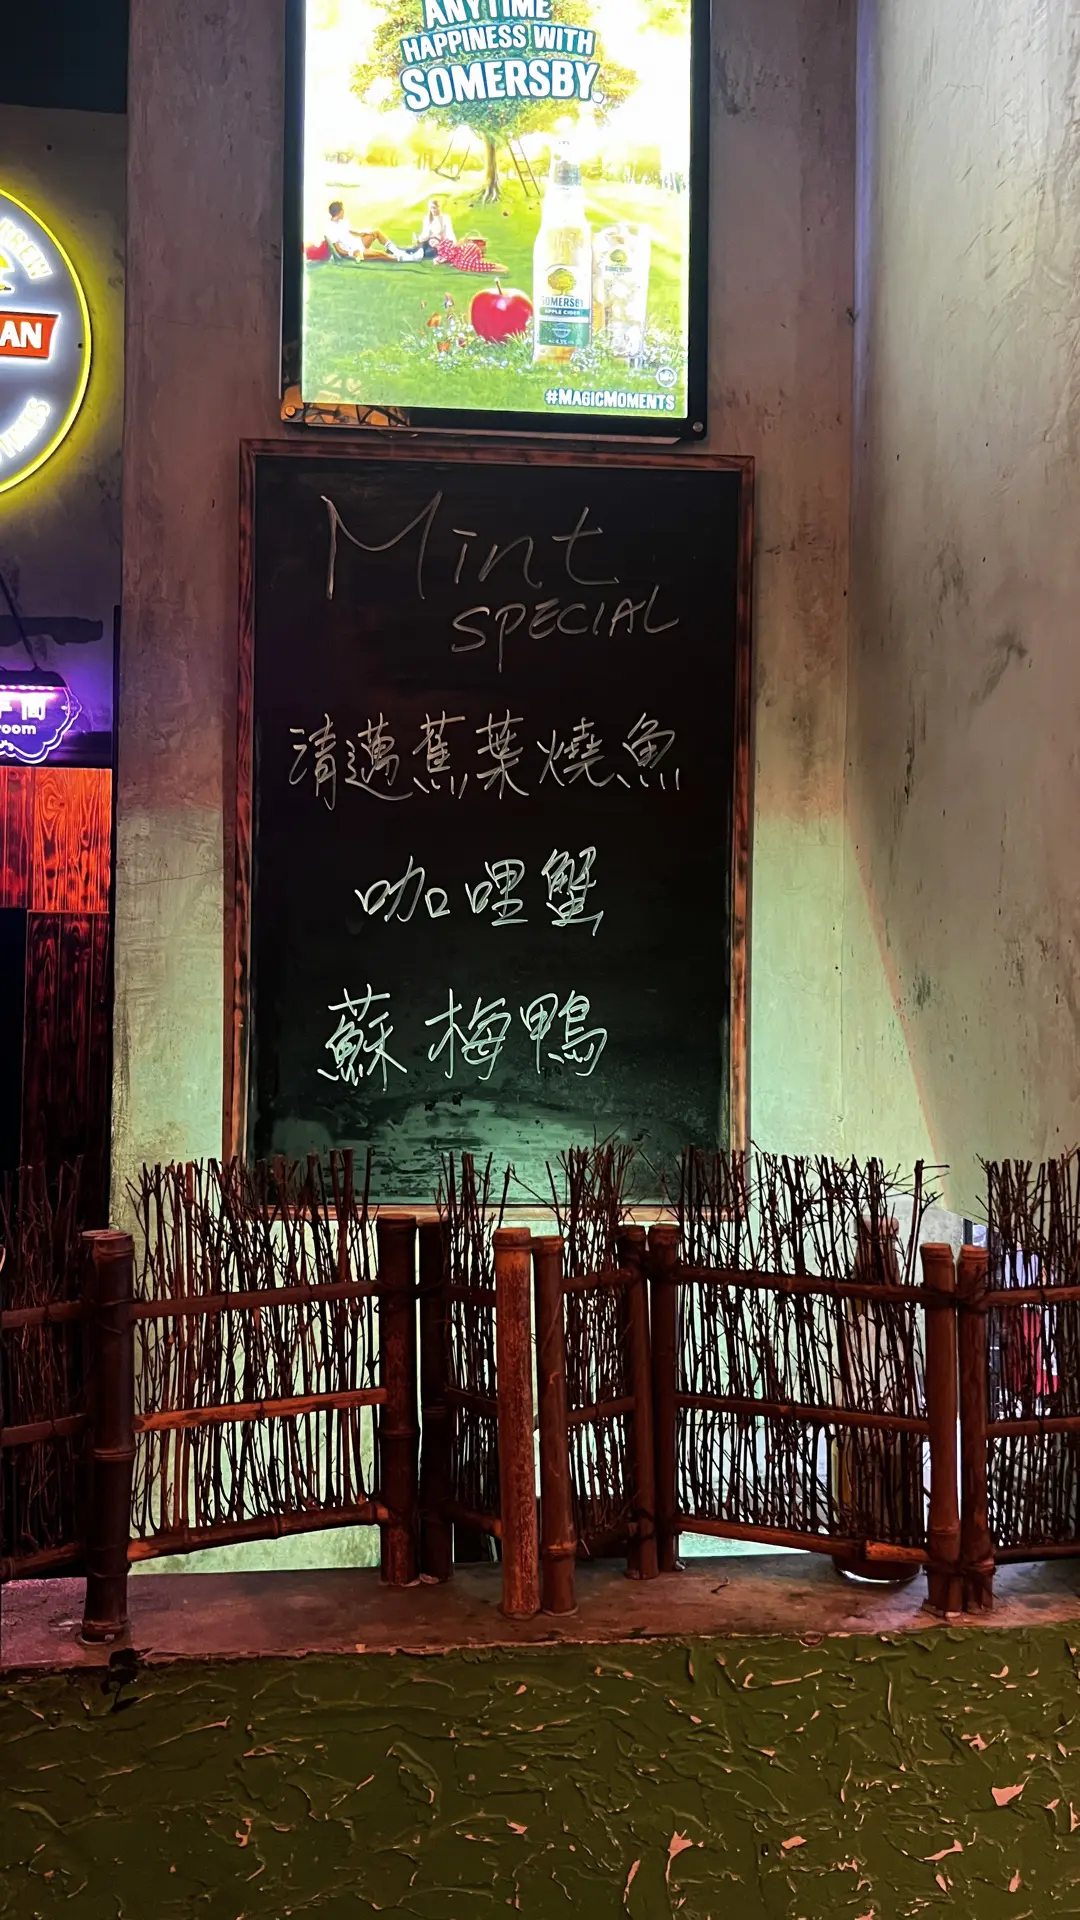 ANYTIME
HAPPINESS WITH
SOMERSBY
SOMERSBY
APPLE CIDER
#MAGICMOMENTS
AN
TIMES
room
Mint
SPECIAL
清邁蕉葉燒魚
咖哩蟹
蘇梅鴨